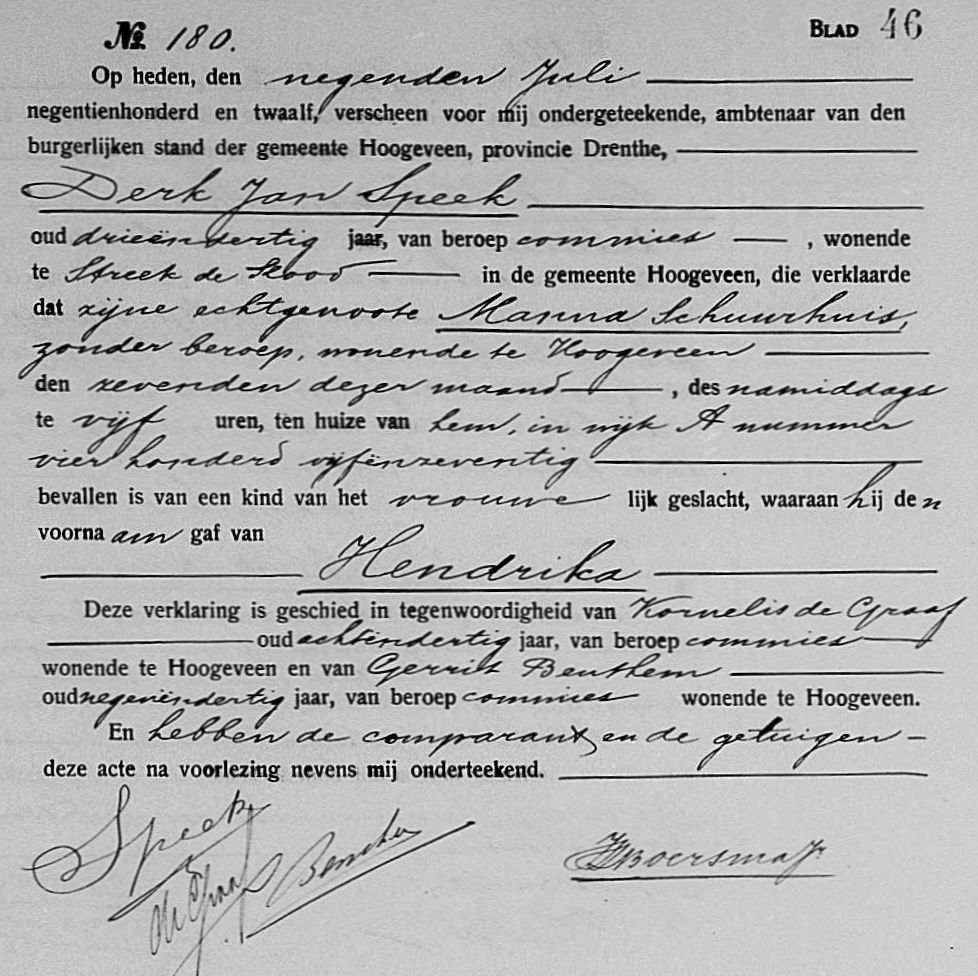 № 180. BLAD 46
Op heden, den negenden Juli
negentienhonderd en twaalf, verscheen voor mij ondergeteekende, ambtenaar van den
burgerlijken stand der gemeente Hoogeveen, provincie Drenthe,
Derk Jan Speek
oud drieëndertig jaar, van beroep commies, wonende
te Streek de in de gemeente Hoogeveen, die verklaarde
dat zijne echtgenoote Manna Schuurhuis,
zonder beroep, wonende te Hoogeveen
den zevenden dezer maand, des namiddags
te vijf uren, ten huize van hem, in wijk A nummer
vier honderd vijfënzeventig
bevallen is van een kind van het vrouwe lijk geslacht, waaraan hij den
voornaam gaf van
Hendrika
Deze verklaring is geschied in tegenwoordigheid van Kornelis de Graaf
oud achtendertig jaar, van beroep commies
wonende te Hoogeveen en van Gerrit Benthem
oud negenëndertig jaar, van beroep commies wonende te Hoogeveen.
En hebben de comparant en de getuigen
deze acte na voorlezing nevens mij onderteekend.
Speek
de Graaf
Benthem
Boersma Jr